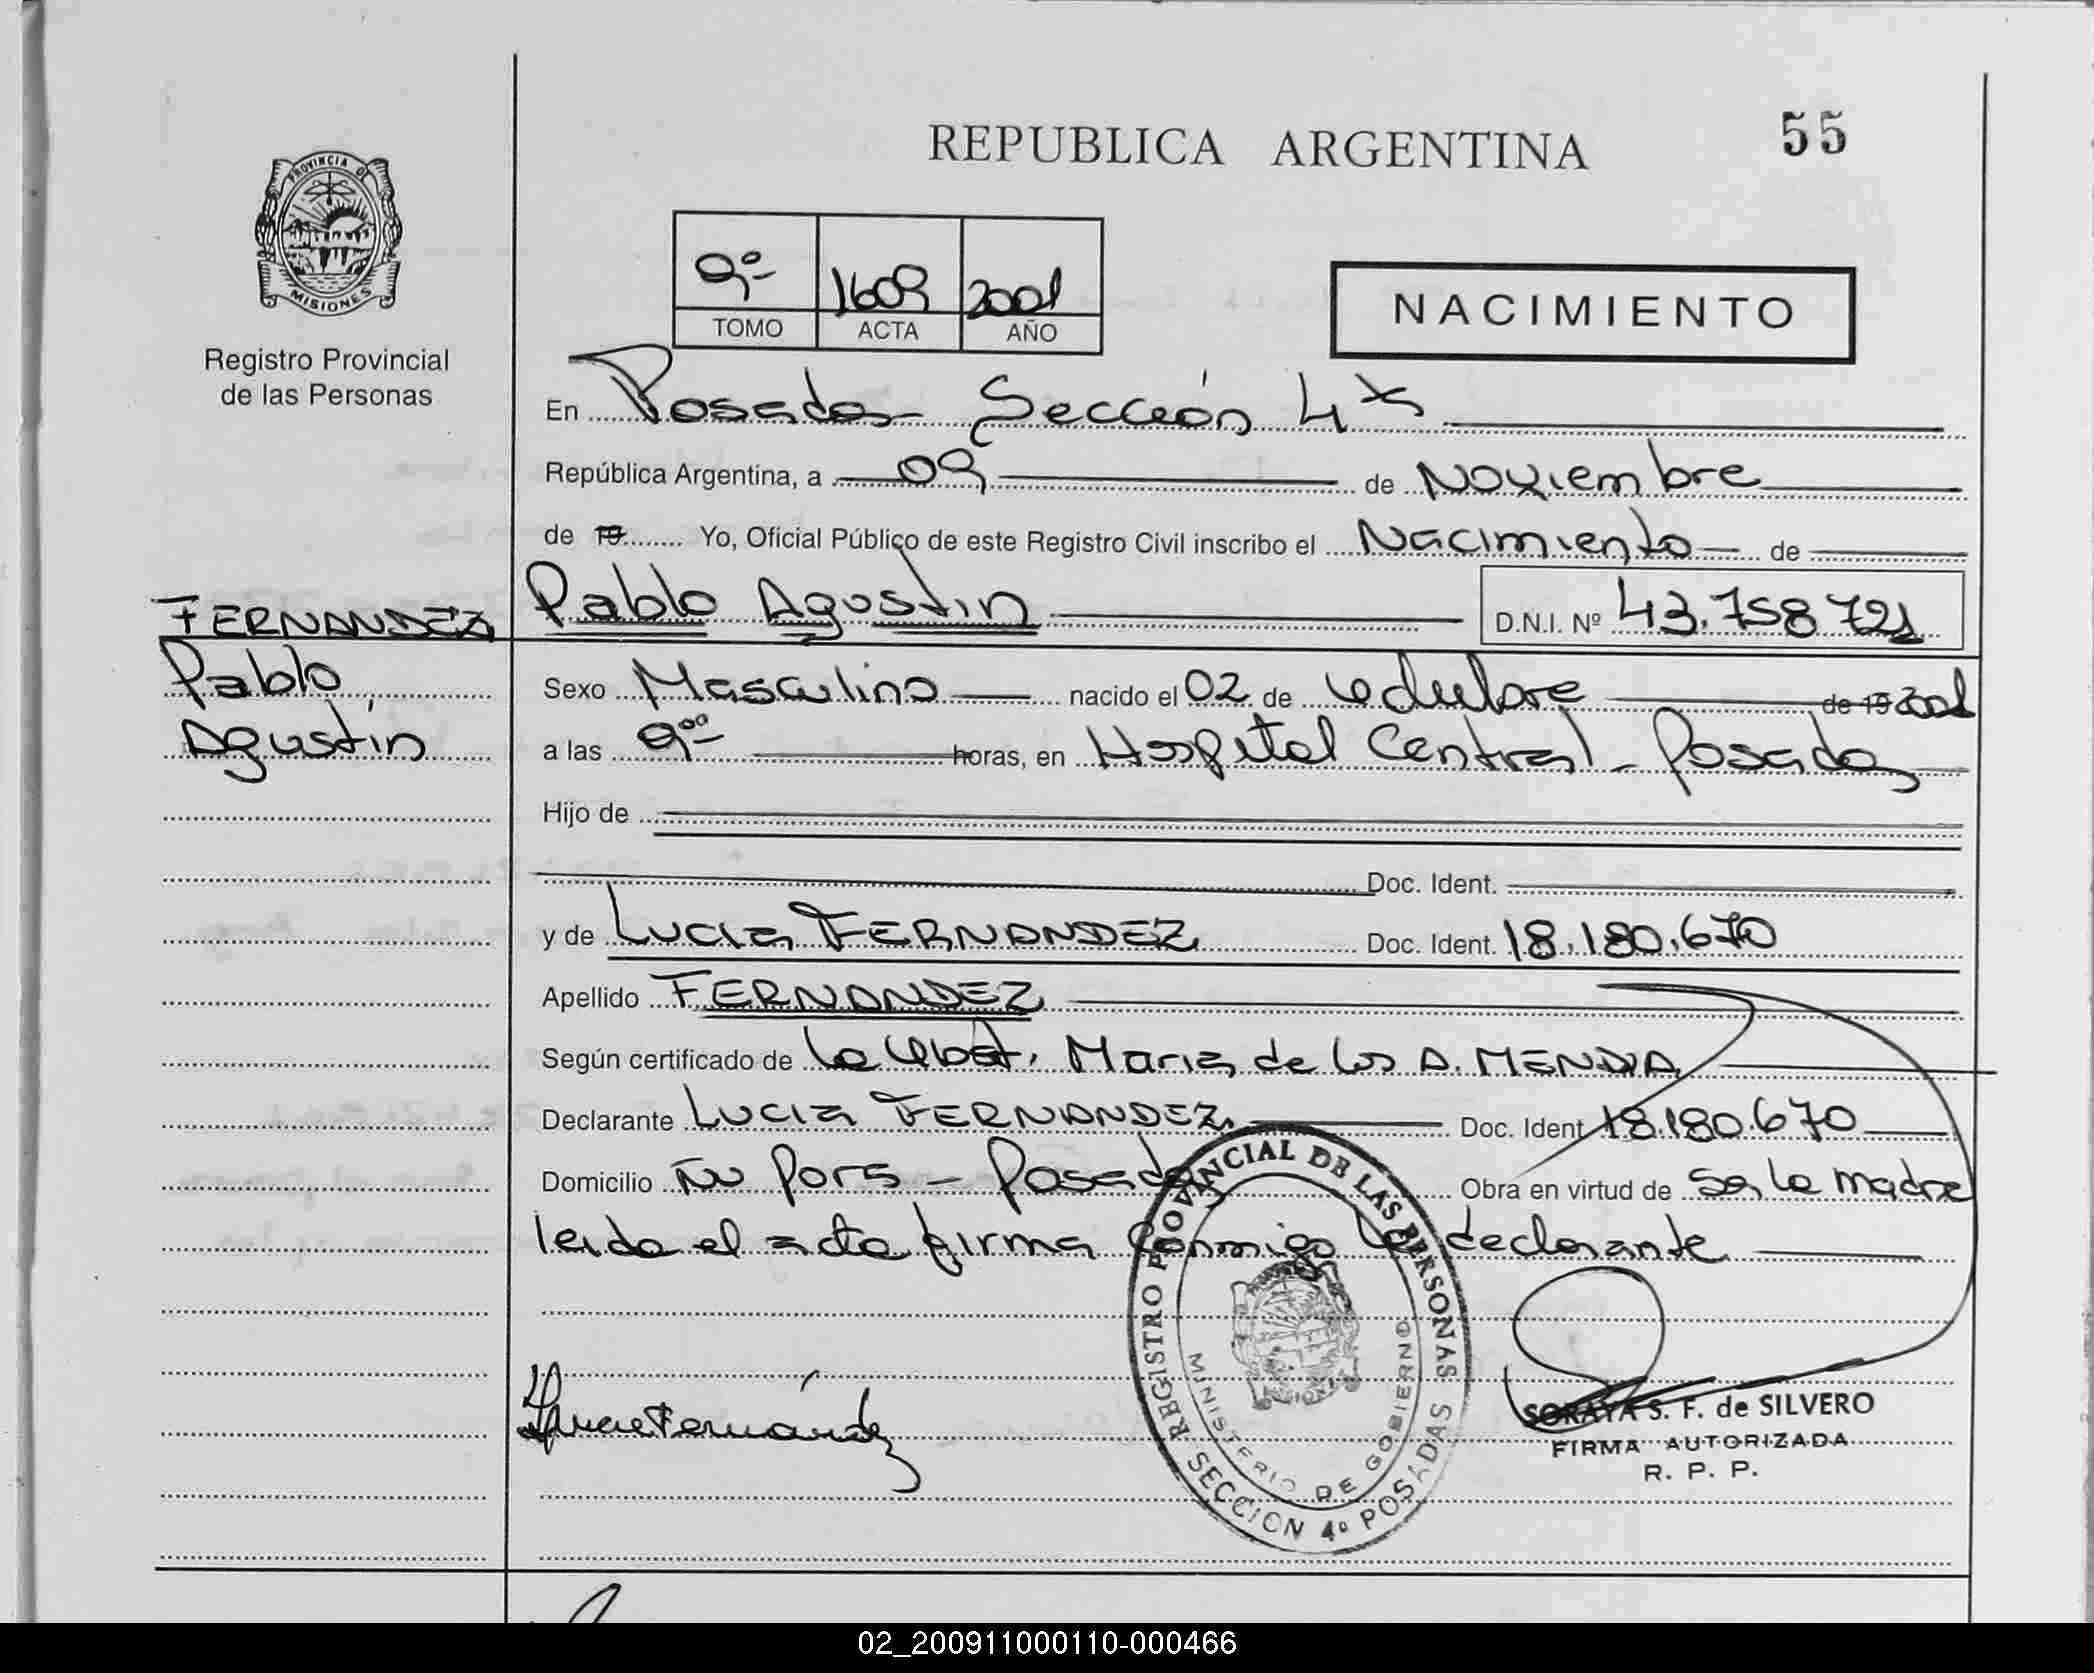 REPUBLICA ARGENTINA
55
PROVINCIA DE
MISIONES
Registro Provincial
de las Personas
9º
1609
2001
TOMO
ACTA
AÑO
NACIMIENTO
En Posadas Sección 4ta
República Argentina, a 09 de Noviembre
de 19 Yo, Oficial Público de este Registro Civil inscribo el Nacimiento de
FERNANDEZ
Pablo
Agustín
Pablo Agustín D.N.I. Nº 43.758.721
Sexo Masculino nacido el 02 de octubre de 19 2001
a las 9:00 horas, en Hospital Central - Posadas
Hijo de
Doc. Ident.
y de Lucia FERNANDEZ Doc. Ident. 18.180.670
Apellido FERNANDEZ
Según certificado de la Obst. Maria de los A. MENDIA
Declarante Lucia FERNANDEZ Doc. Ident. 18.180.670
Domicilio Ñu Pora - Posadas Obra en virtud de ser la madre
leida el acta firma conmigo la declarante
REGISTRO PROVINCIAL DE LAS PERSONAS
MINISTERIO DE GOBIERNO
SECCION 4º POSADAS
Fernández
SORAYA S. F. de SILVERO
FIRMA AUTORIZADA
R. P. P.
02_200911000110-000466